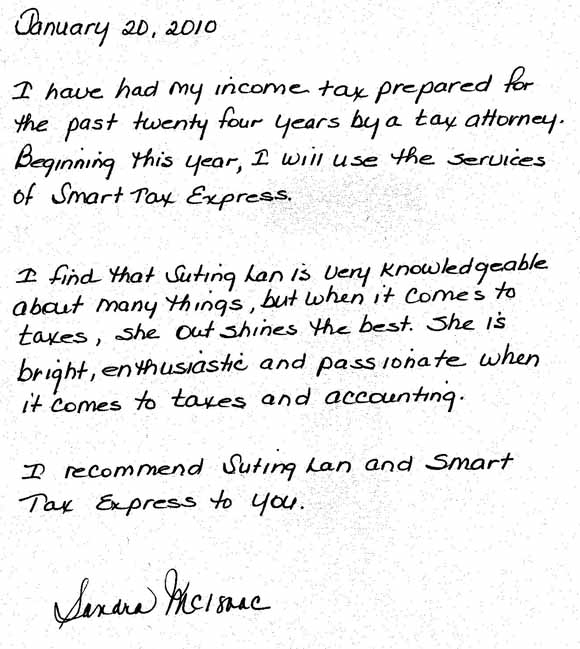 January 20, 2010
I have had my income tax prepared for
the past twenty four years by a tax attorney.
Beginning this year, I will use the services
of Smart Tax Express.
I find that Suting Lan is very knowledgeable
about many things, but when it comes to
taxes, she out shines the best. She is
bright, enthusiastic and passionate when
it comes to taxes and accounting.
I recommend Suting Lan and Smart
Tax Express to you.
Sandra McIsaac